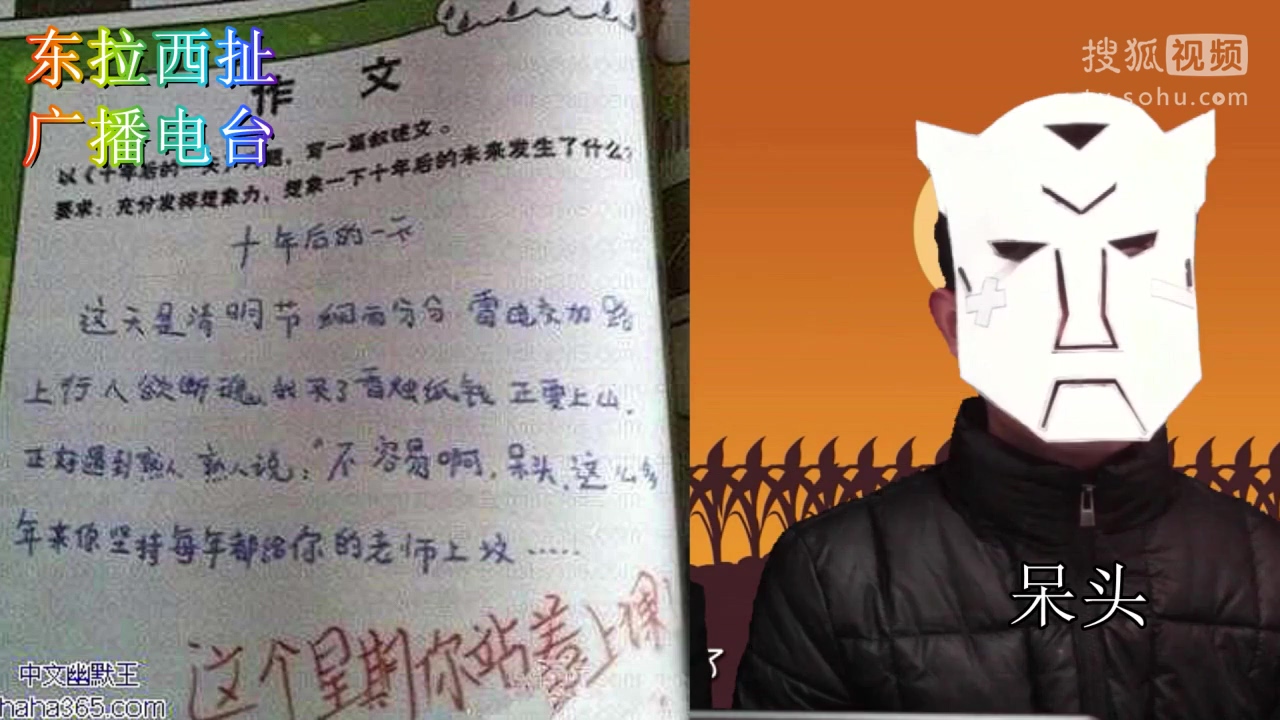 东拉西扯
广播电台
作 文
以《十年后的一天》为题,写一篇叙述文。
要求:充分发挥想象力,想象一下十年后的未来发生了什么?
十年后的一天
这天是清明节 细雨分分 雷电交加 路
上行人欲断魂,我买了香烛纸钱 正要上山,
正好遇到熟人 熟人说:“不容易啊,呆头,这么多
年来你坚持每年都给你的老师上坟……
这个星期你站着上课!
中文幽默王
haha365.com
搜狐视频
tv.sohu.com
呆头
了